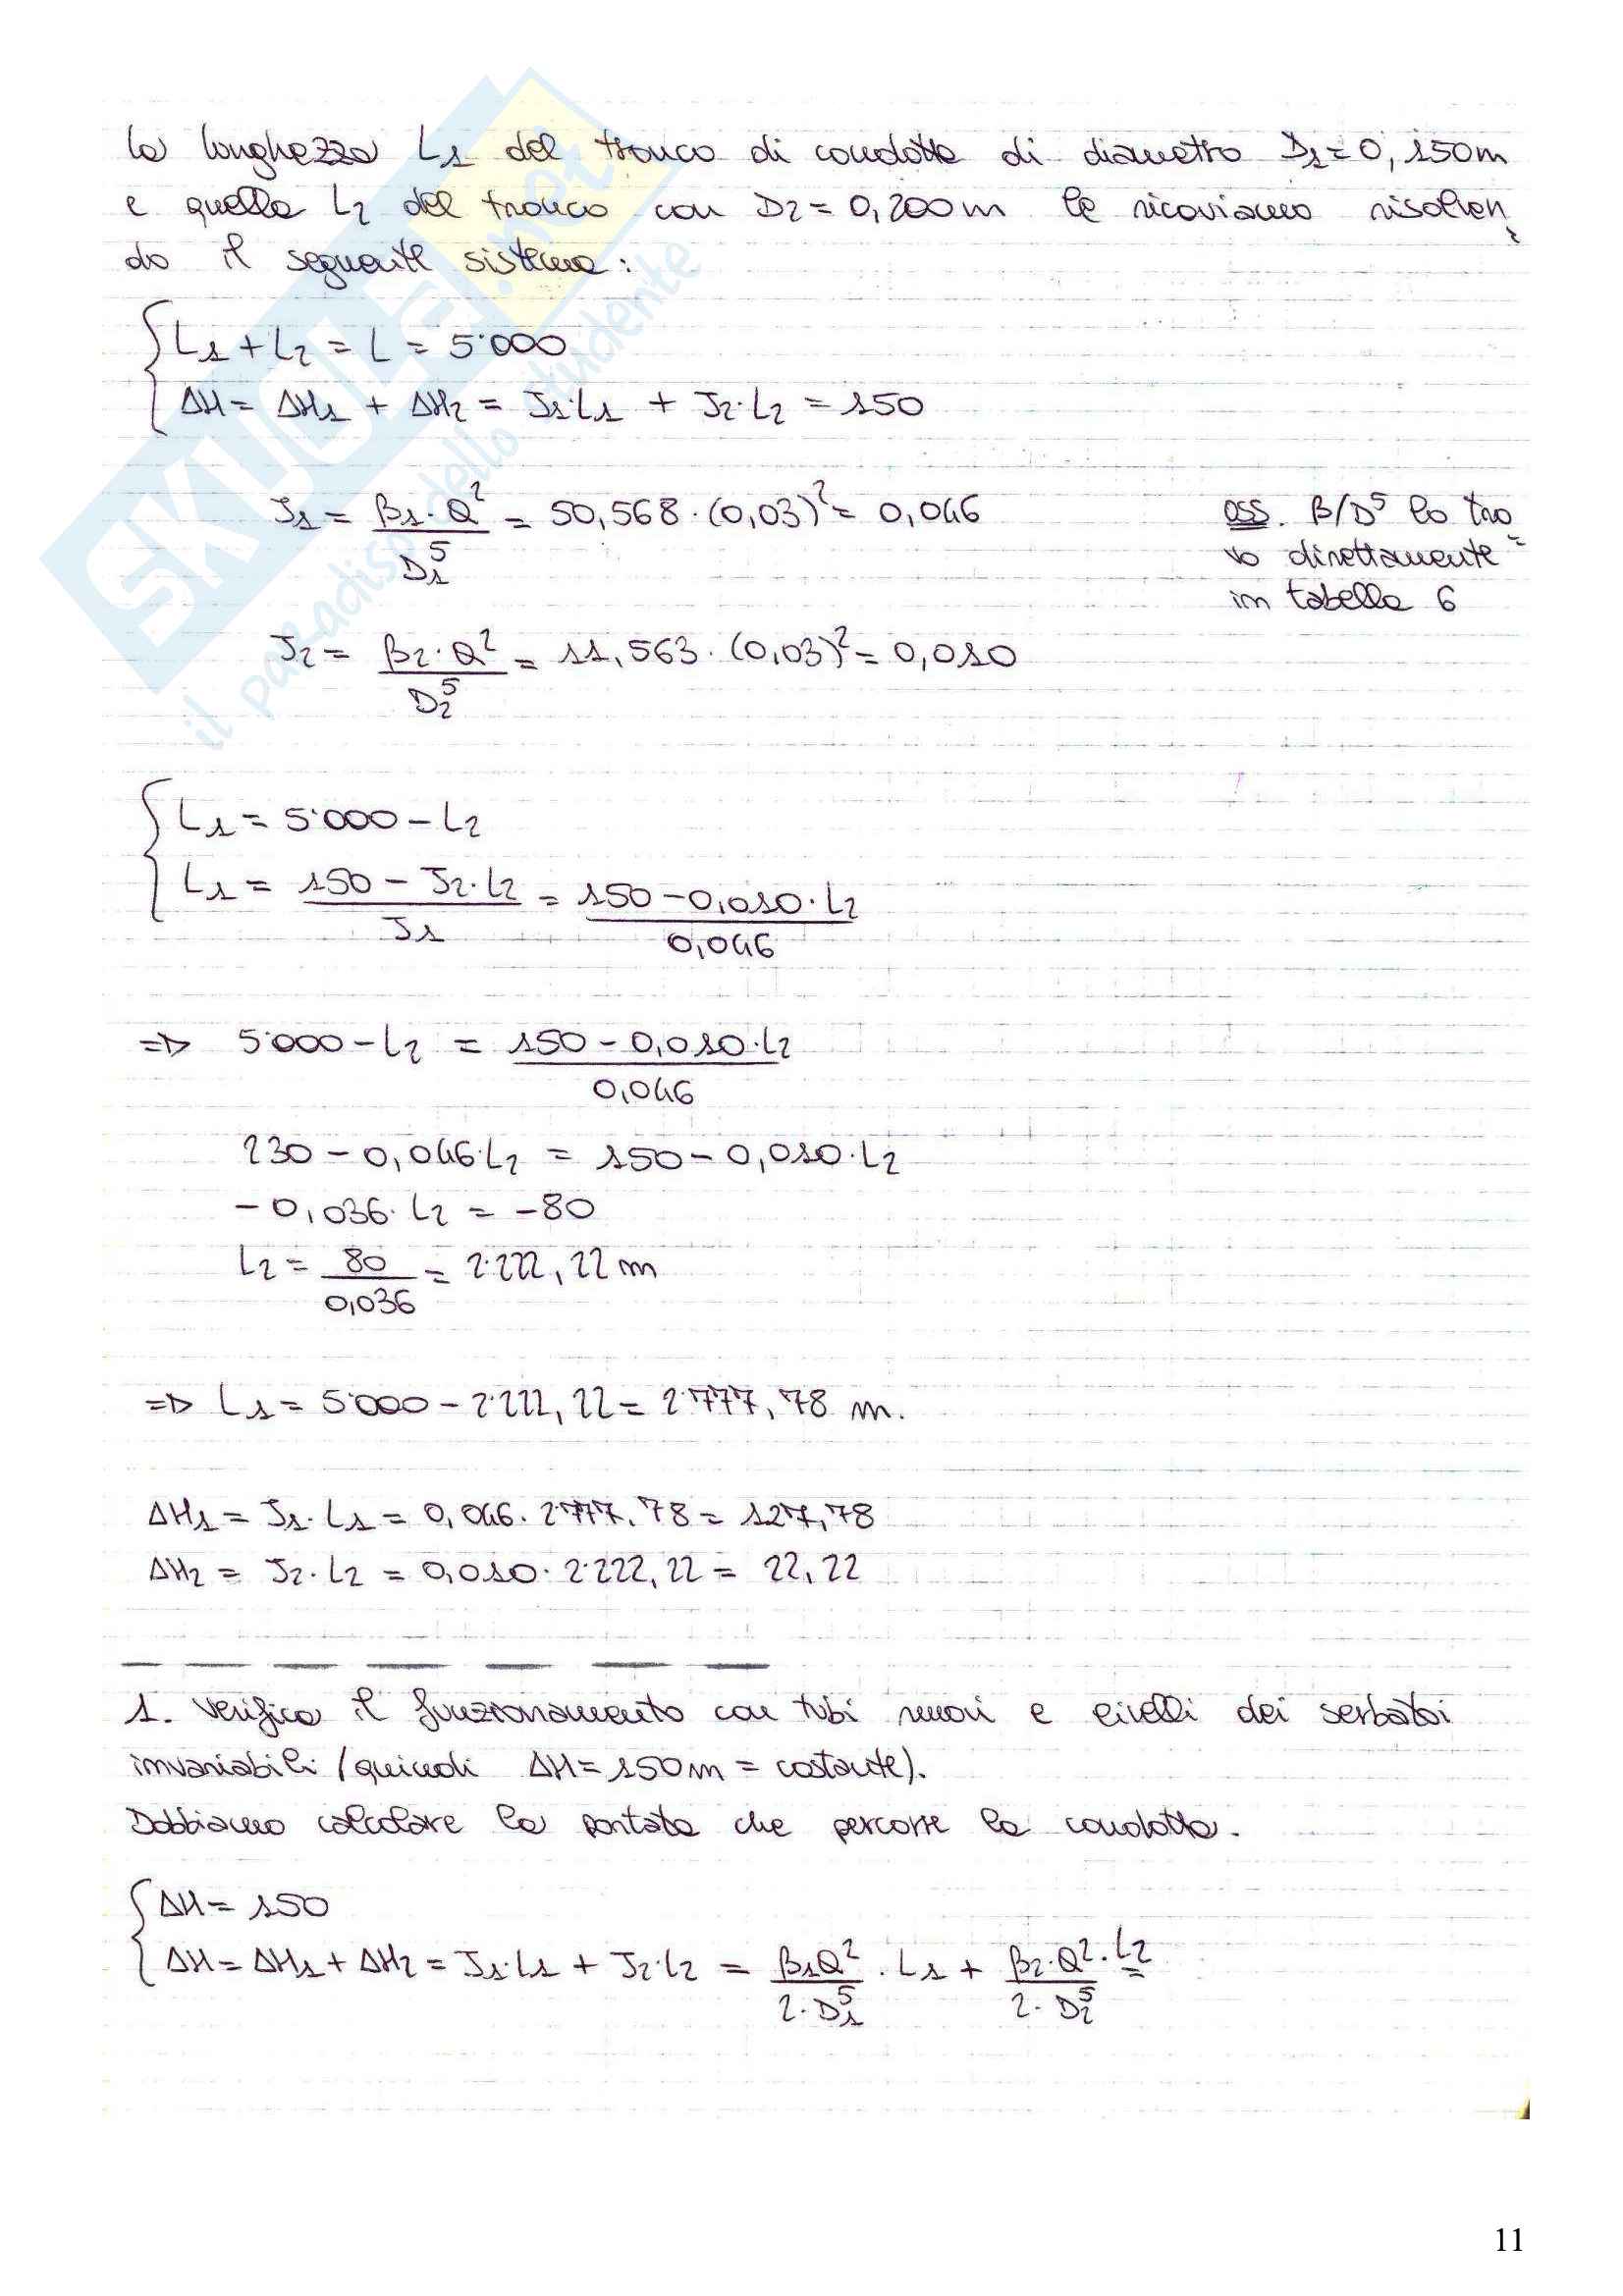 la lunghezza L1 del tronco di condotta di diametro D1 = 0,150 m
e quella L2 del tronco con D2 = 0,200 m le ricaviamo risolven
do il seguente sistema:
L1 + L2 = L = 5'000
ΔH = ΔH1 + ΔH2 = J1·L1 + J2·L2 = 150
J1 = β1·Q² / D1⁵ = 50,568·(0,03)² = 0,046
oss. β/D⁵ lo tro
vo direttamente
in tabella 6
J2 = β2·Q² / D2⁵ = 11,563·(0,03)² = 0,010
L1 = 5'000 - L2
L1 = 150 - J2·L2 / J1 = 150 - 0,010·L2 / 0,046
=> 5'000 - L2 = 150 - 0,010·L2 / 0,046
230 - 0,046·L2 = 150 - 0,010·L2
- 0,036·L2 = - 80
L2 = 80 / 0,036 = 2'222,22 m
=> L1 = 5'000 - 2'222,22 = 2'777,78 m.
ΔH1 = J1·L1 = 0,046·2'777,78 = 127,78
ΔH2 = J2·L2 = 0,010·2'222,22 = 22,22
1. Verifico il funzionamento con tubi nuovi e livelli dei serbatoi
invariabili (quindi ΔH = 150 m = costante).
Dobbiamo calcolare la portata che percorre la condotta.
ΔH = 150
ΔH = ΔH1 + ΔH2 = J1·L1 + J2·L2 = β1Q² / 2·D1⁵ · L1 + β2·Q² / 2·D2⁵ · L2
11
SKUOLA.net
il paradiso dello studente